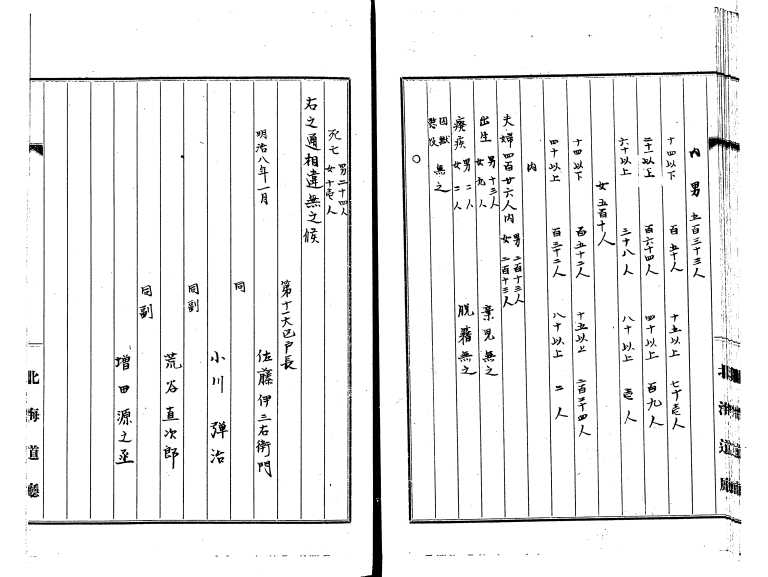 内 男 五百三十三人
十四以下 百五十人 十五以上 七十壱人
二十一以上 百六十四人 四十以上 百九人
六十以上 三十八人 八十以上 壱人
女 五百十人
十四以下 百五十二人 十五以上 二百二十四人
四十以上 百三十二人 八十以上 二人
内
夫婦四百廿六人内 男二百十三人 女二百十三人
出生 男十三人 女九人 棄児無之
癈疾 男二人 女二人 脱籍無之
囚獄 懲役 無之
○
北海道廳
死亡 男二十四人 女十壱人
右之通相違無之候
第十一大区戸長
明治八年一月
佐藤伊三右衛門
同
小川弾治
同副
荒谷直次郎
同副
増田源之丞
北海道廳